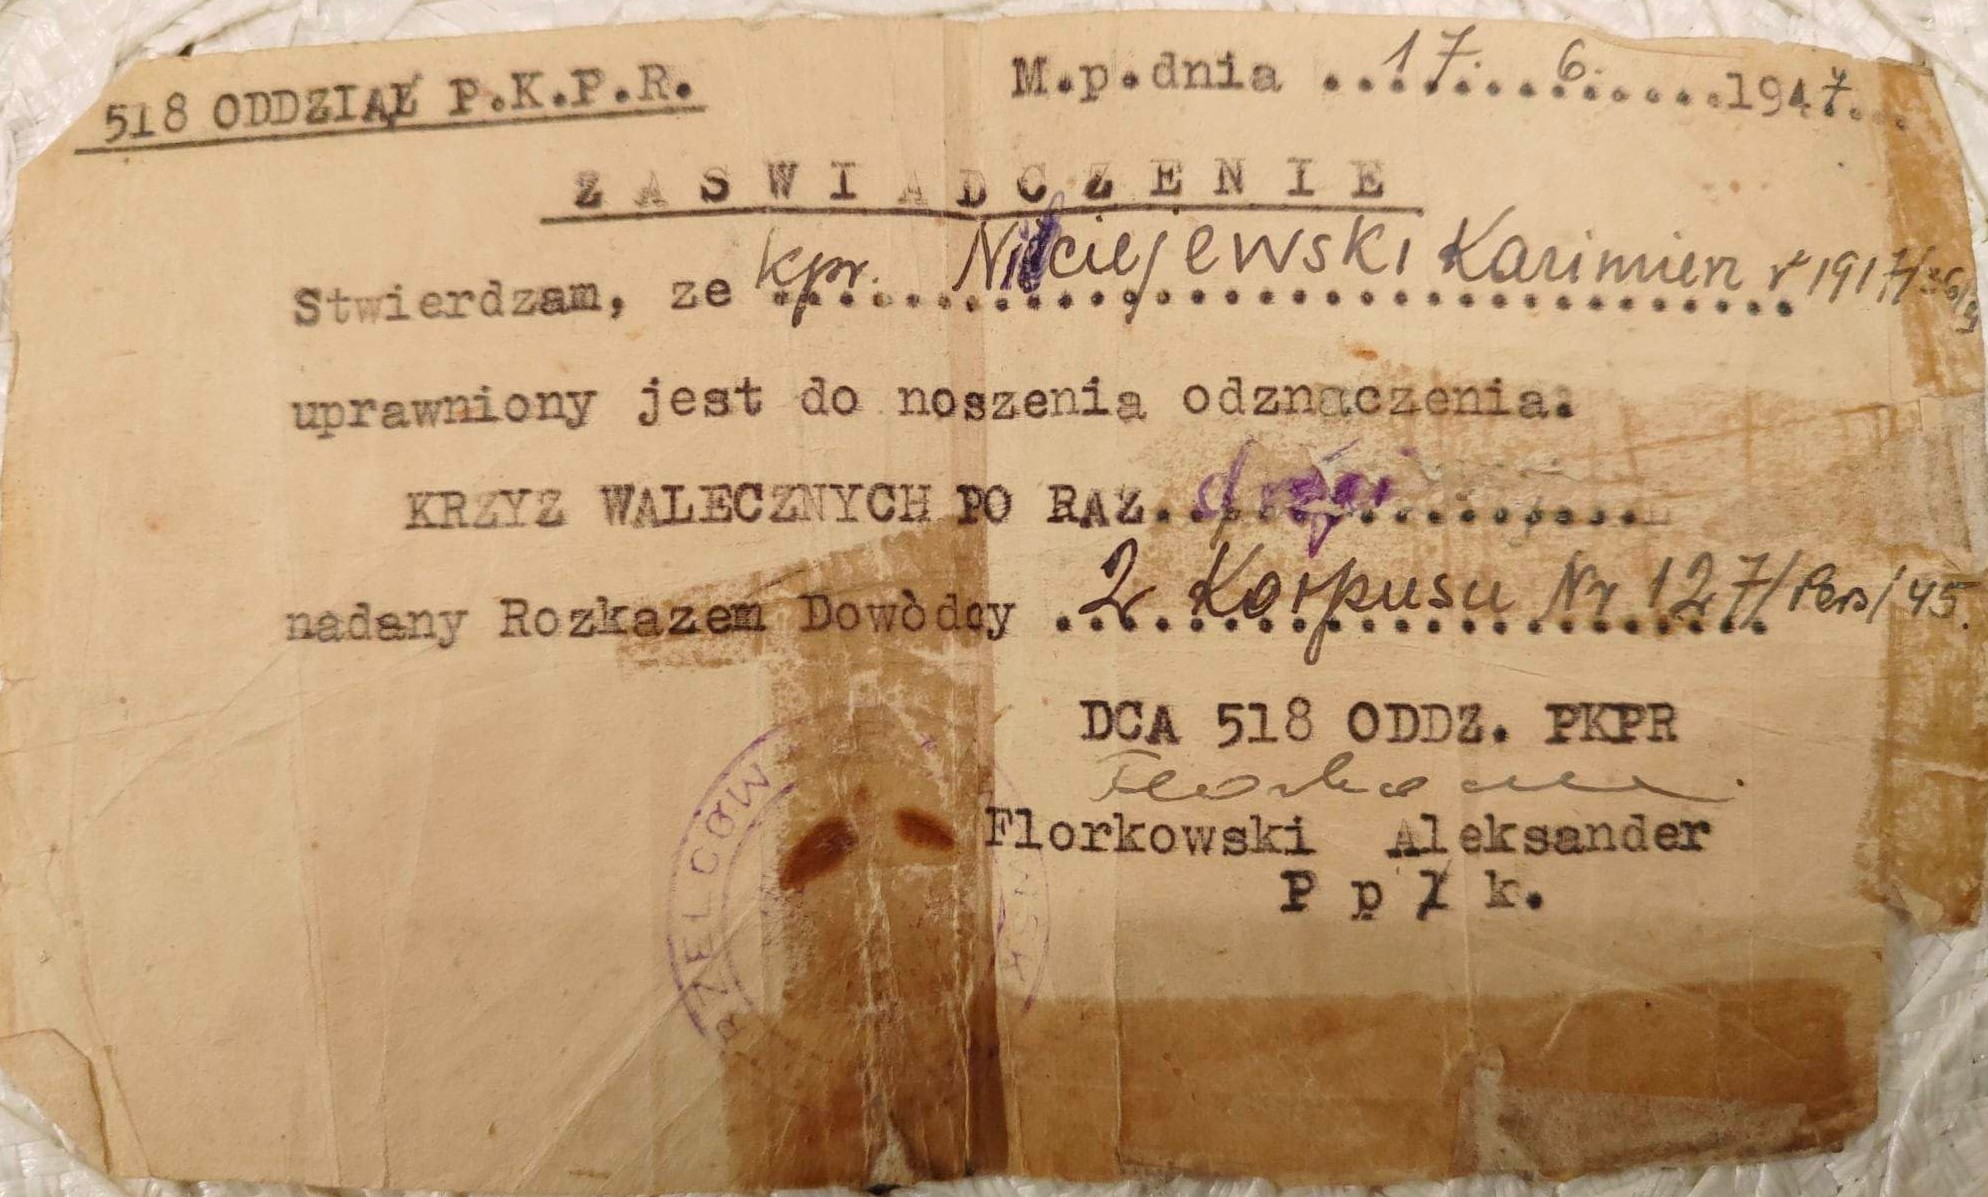 518 ODDZIAŁ P.K.P.R.
M.p.dnia 17. 6. 1947.
ZASWIADCZENIE
Stwierdzam, ze kpr. Niciejewski Kazimierz r 1917/
uprawniony jest do noszenia odznaczenia:
KRZYZ WALECZNYCH PO RAZ
nadany Rozkazem Dowòdcy 2 Korpusu Nr 127/Pers/45.
DCA 518 ODDZ. PKPR
Florkowski Aleksander
Ppłk.
RZELCÓW